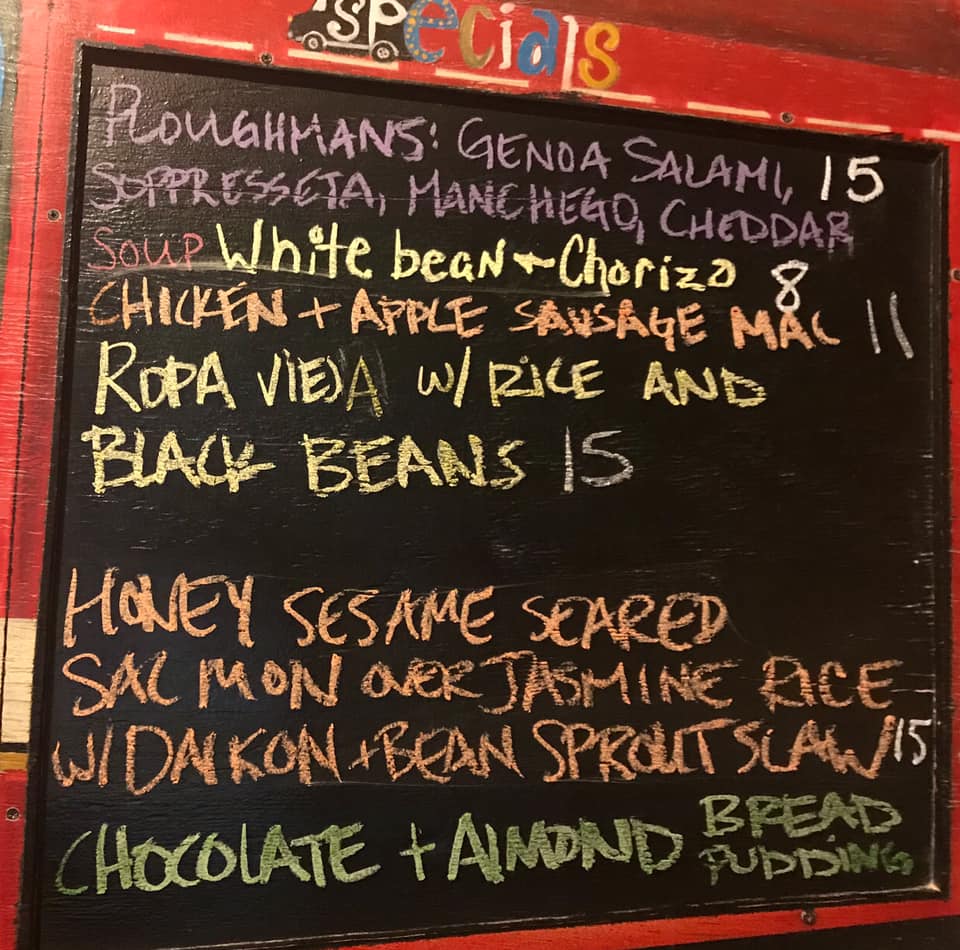 SPecials
PLOUGHMANS: GENOA SALAMI, 15
SUPPRESSETA, MANCHEGO, CHEDDAR
SOUP White bean + Chorizo 8
CHICKEN + APPLE SAUSAGE MAC 11
ROPA VIEJA W/ RICE AND
BLACK BEANS 15
HONEY SESAME SEARED
SALMON OVER JASMINE RICE
W/ DAIKON + BEAN SPROUT SLAW 15
CHOCOLATE + ALMOND BREAD
PUDDING